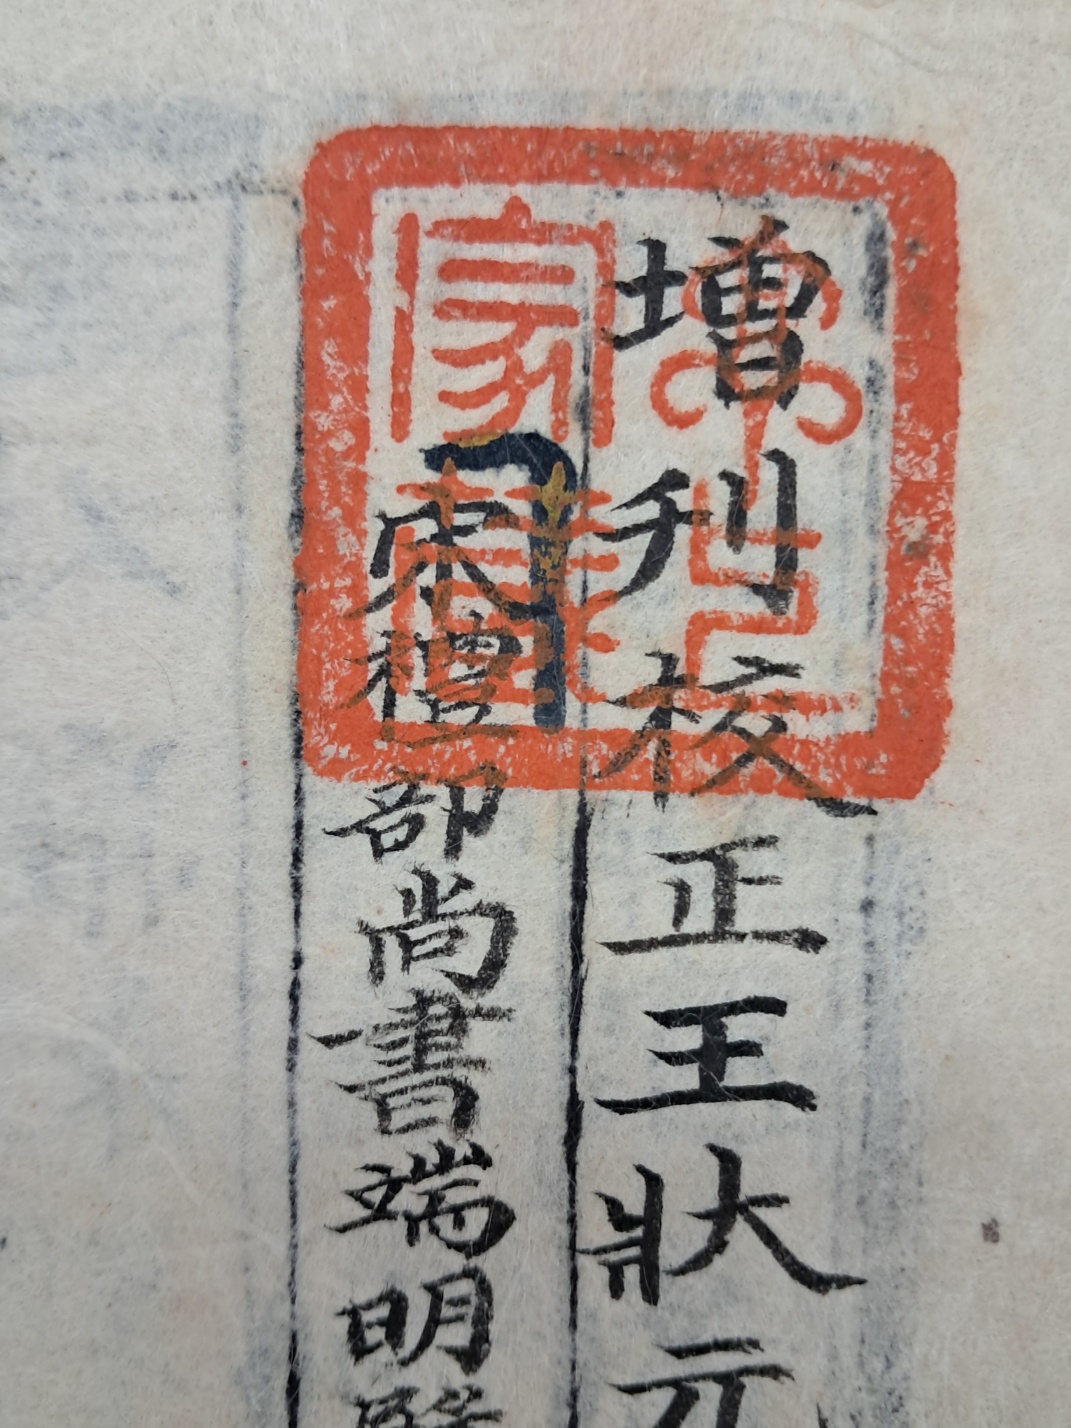 增刊校正王狀元
宋禮部尚書端明殿